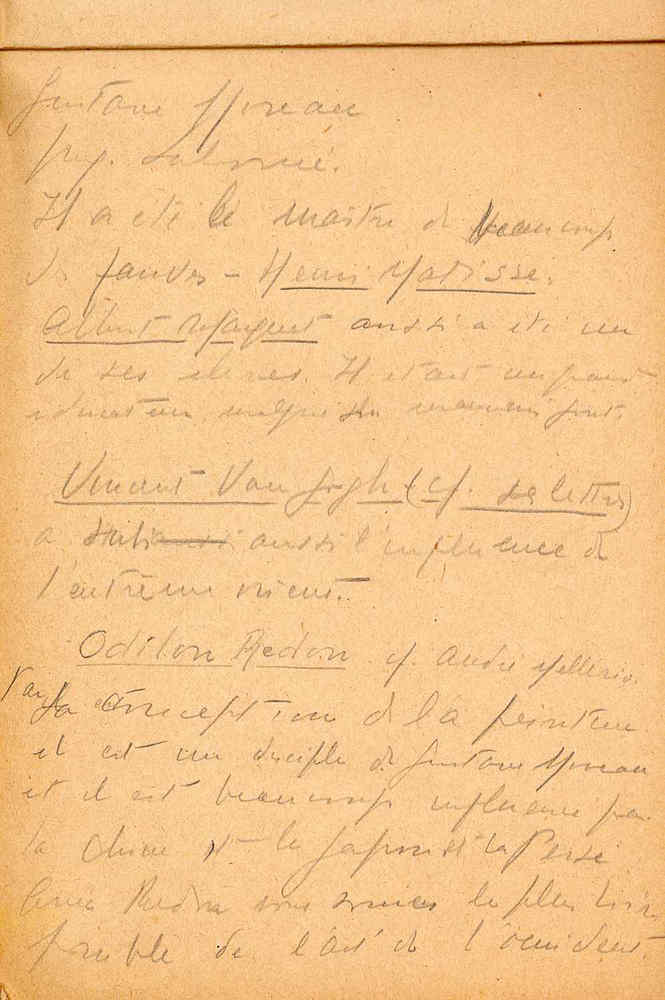 Gustave Moreau
Salomé.
Il a été le maître de beaucoup
de fauves – Henri Matisse.
Albert Marquet aussi a été un
de ses élèves. Il était un grand
éducateur malgré
Vincent Van Gogh (cf. sa lettre)
a subi aussi l'influence de
l'extrême orient.
Odilon Redon cf. André Mellerio.
Par sa conception de la peinture
il est un disciple de Gustave Moreau
et il est beaucoup influencé par
la Chine et le Japon et la Perse
avec Redon nous sommes le plus loin
possible de l'art de l'occident.